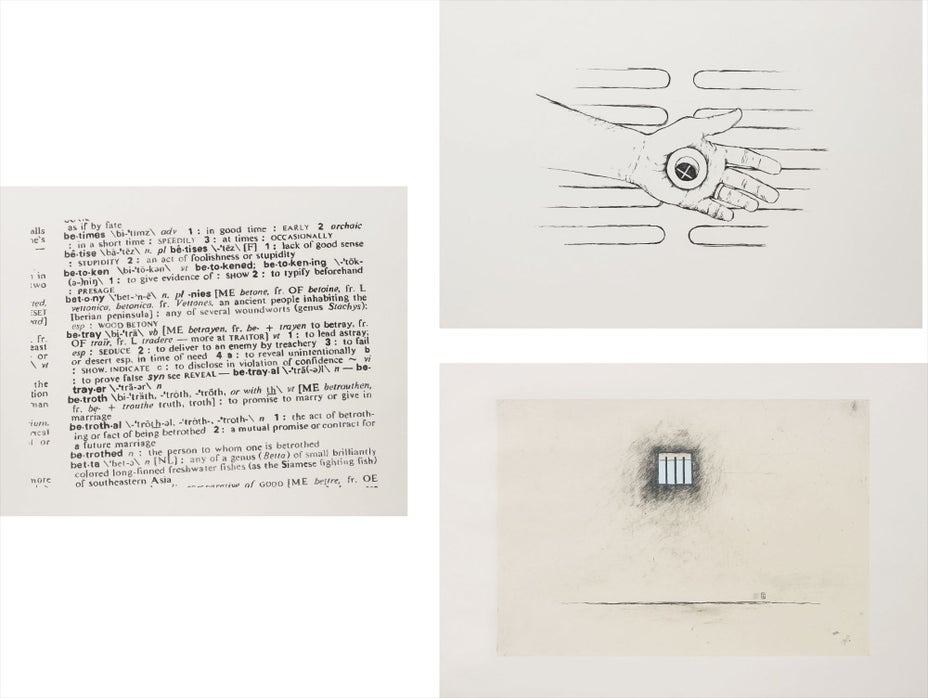 alls
he's
—
in
two
ted,
ESET
ead]
fr.
east
or
\ vt
the
tion
man
ium,
or
more
as if by fate
be·times \bi-ˈtīmz\ adv 1 : in good time : EARLY 2 archaic
: in a short time : SPEEDILY 3 : at times : OCCASIONALLY
bê·tise \bā-ˈtēz\ n, pl bê·tises \-ˈtēz\ [F] 1 : lack of good sense
: STUPIDITY 2 : an act of foolishness or stupidity
be·to·ken \bi-ˈtō-kən\ vt be·to·kened; be·to·ken·ing \-ˈtōk-
(ə-)niŋ\ 1 : to give evidence of : SHOW 2 : to typify beforehand
: PRESAGE
bet·o·ny \ˈbet-ᵊn-ē\ n, pl -nies [ME betone, fr. OF betoine, fr. L
vettonica, betonica, fr. Vettones, an ancient people inhabiting the
Iberian peninsula] : any of several woundworts (genus Stachys);
esp : WOOD BETONY
be·tray \bi-ˈtrā\ vb [ME betrayen, fr. be- + trayen to betray, fr.
OF traïr, fr. L tradere — more at TRAITOR] vt 1 : to lead astray;
esp : SEDUCE 2 : to deliver to an enemy by treachery 3 : to fail
or desert esp. in time of need 4 a : to reveal unintentionally b
: SHOW, INDICATE c : to disclose in violation of confidence ~ vi
: to prove false syn see REVEAL — be·tray·al \-ˈtrā(-ə)l\ n — be-
tray·er \-ˈtrā-ər\ n
be·troth \bi-ˈträth, -ˈtrȯth, -ˈtrōth, or with th\ vt [ME betrouthen,
fr. be- + trouthe truth, troth] : to promise to marry or give in
marriage
be·troth·al \-ˈtrōth-əl, -ˈtrȯth-, -ˈtroth-\ n 1 : the act of betroth-
ing or fact of being betrothed 2 : a mutual promise or contract for
a future marriage
be·trothed n : the person to whom one is betrothed
bet·ta \ˈbet-ə\ n [NL] : any of a genus (Betta) of small brilliantly
colored long-finned freshwater fishes (as the Siamese fighting fish)
of southeastern Asia
comparative of GOOD [ME bettre, fr. OE